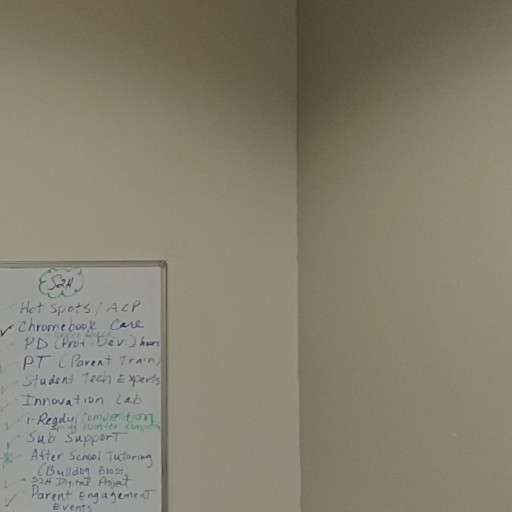 S2H
Hot Spots / ACP
Chromebook Care
PD (Prof Dev) hours
PT (Parent Train)
Student Tech Experts
Innovation Lab
i-Ready Competition
Sub Support
After School Tutoring
(Bulldog Boost)
S2H Digital Project
Parent Engagement
Events